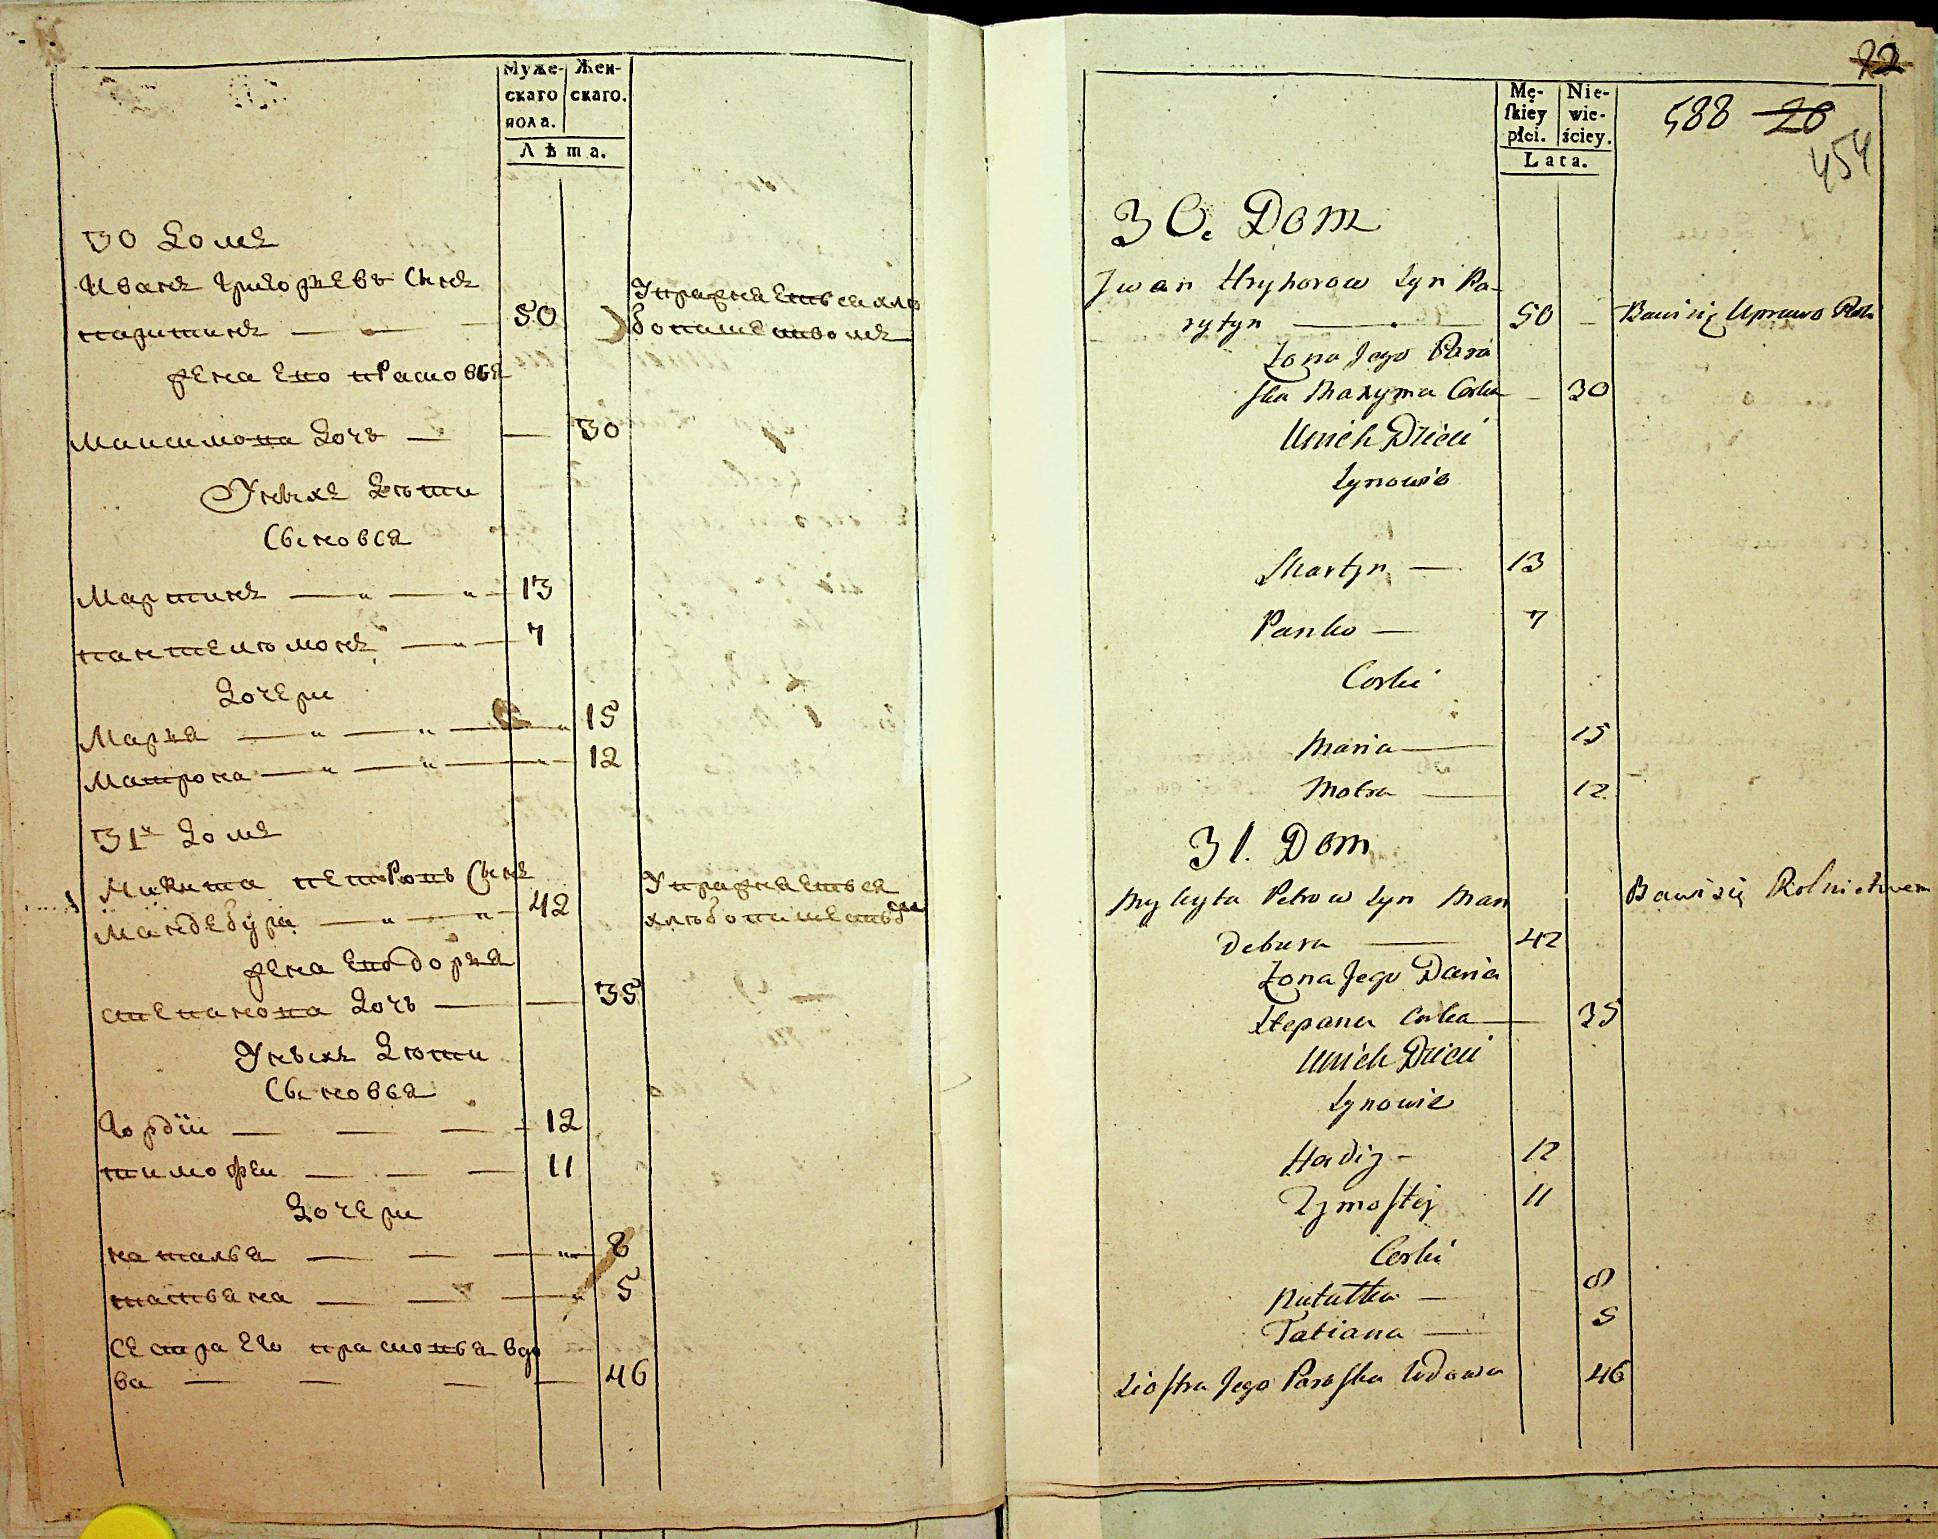 Муже-
скаго
пола.
Жен-
скаго.
Лѣта.
30 Домъ
Иванъ Григорьевъ Сынъ
паритинъ — 50 Упражняется хлѣ
бопашеством
жена Его прасковья
Максимова Дочь — 30
Унихъ Дѣти
Сыновья
Мартинъ — 13
пантелѣмонъ — 7
Дочери
Марья — 15
Матрона — 12
31й Домъ
Микита петровъ Сынъ
Мандебура — 42
Упражняется
хлѣбопашеством
жена Его дарья
степанова Дочь — 35
Унихъ Дѣти
Сыновья
Гордій — 12
тимофеи — 11
Дочери
наталья — 8
татьяна — 5
сестра Его прасковья вдо
ва — 46
22
Mę-
skiey
płci.
Nie-
wie-
ściey.
Lata.
588 26
454
30. Dom
Jwan Hryhorow Syn Pa-
rytyn — 50 — Bawi się Uprawo Roli
Żona Jego Para
ska Maxyma Corka — 30
U nich Dzieci
Synowie
Martyn — 13
Panko — 7
Corki
Maria — 15
Motra — 12
31. Dom
Mykyta Petrow Syn Man
Bawi się Rolnictwem
debura — 42
Żona Jego Daria
Stepana Corka — 35
U nich Dzieci
Synowie
Hardiy — 12
Tymoftej 11
Corki
Natalka — 8
Tatiana — 5
Siostra Jego Paraska Wdowa 46